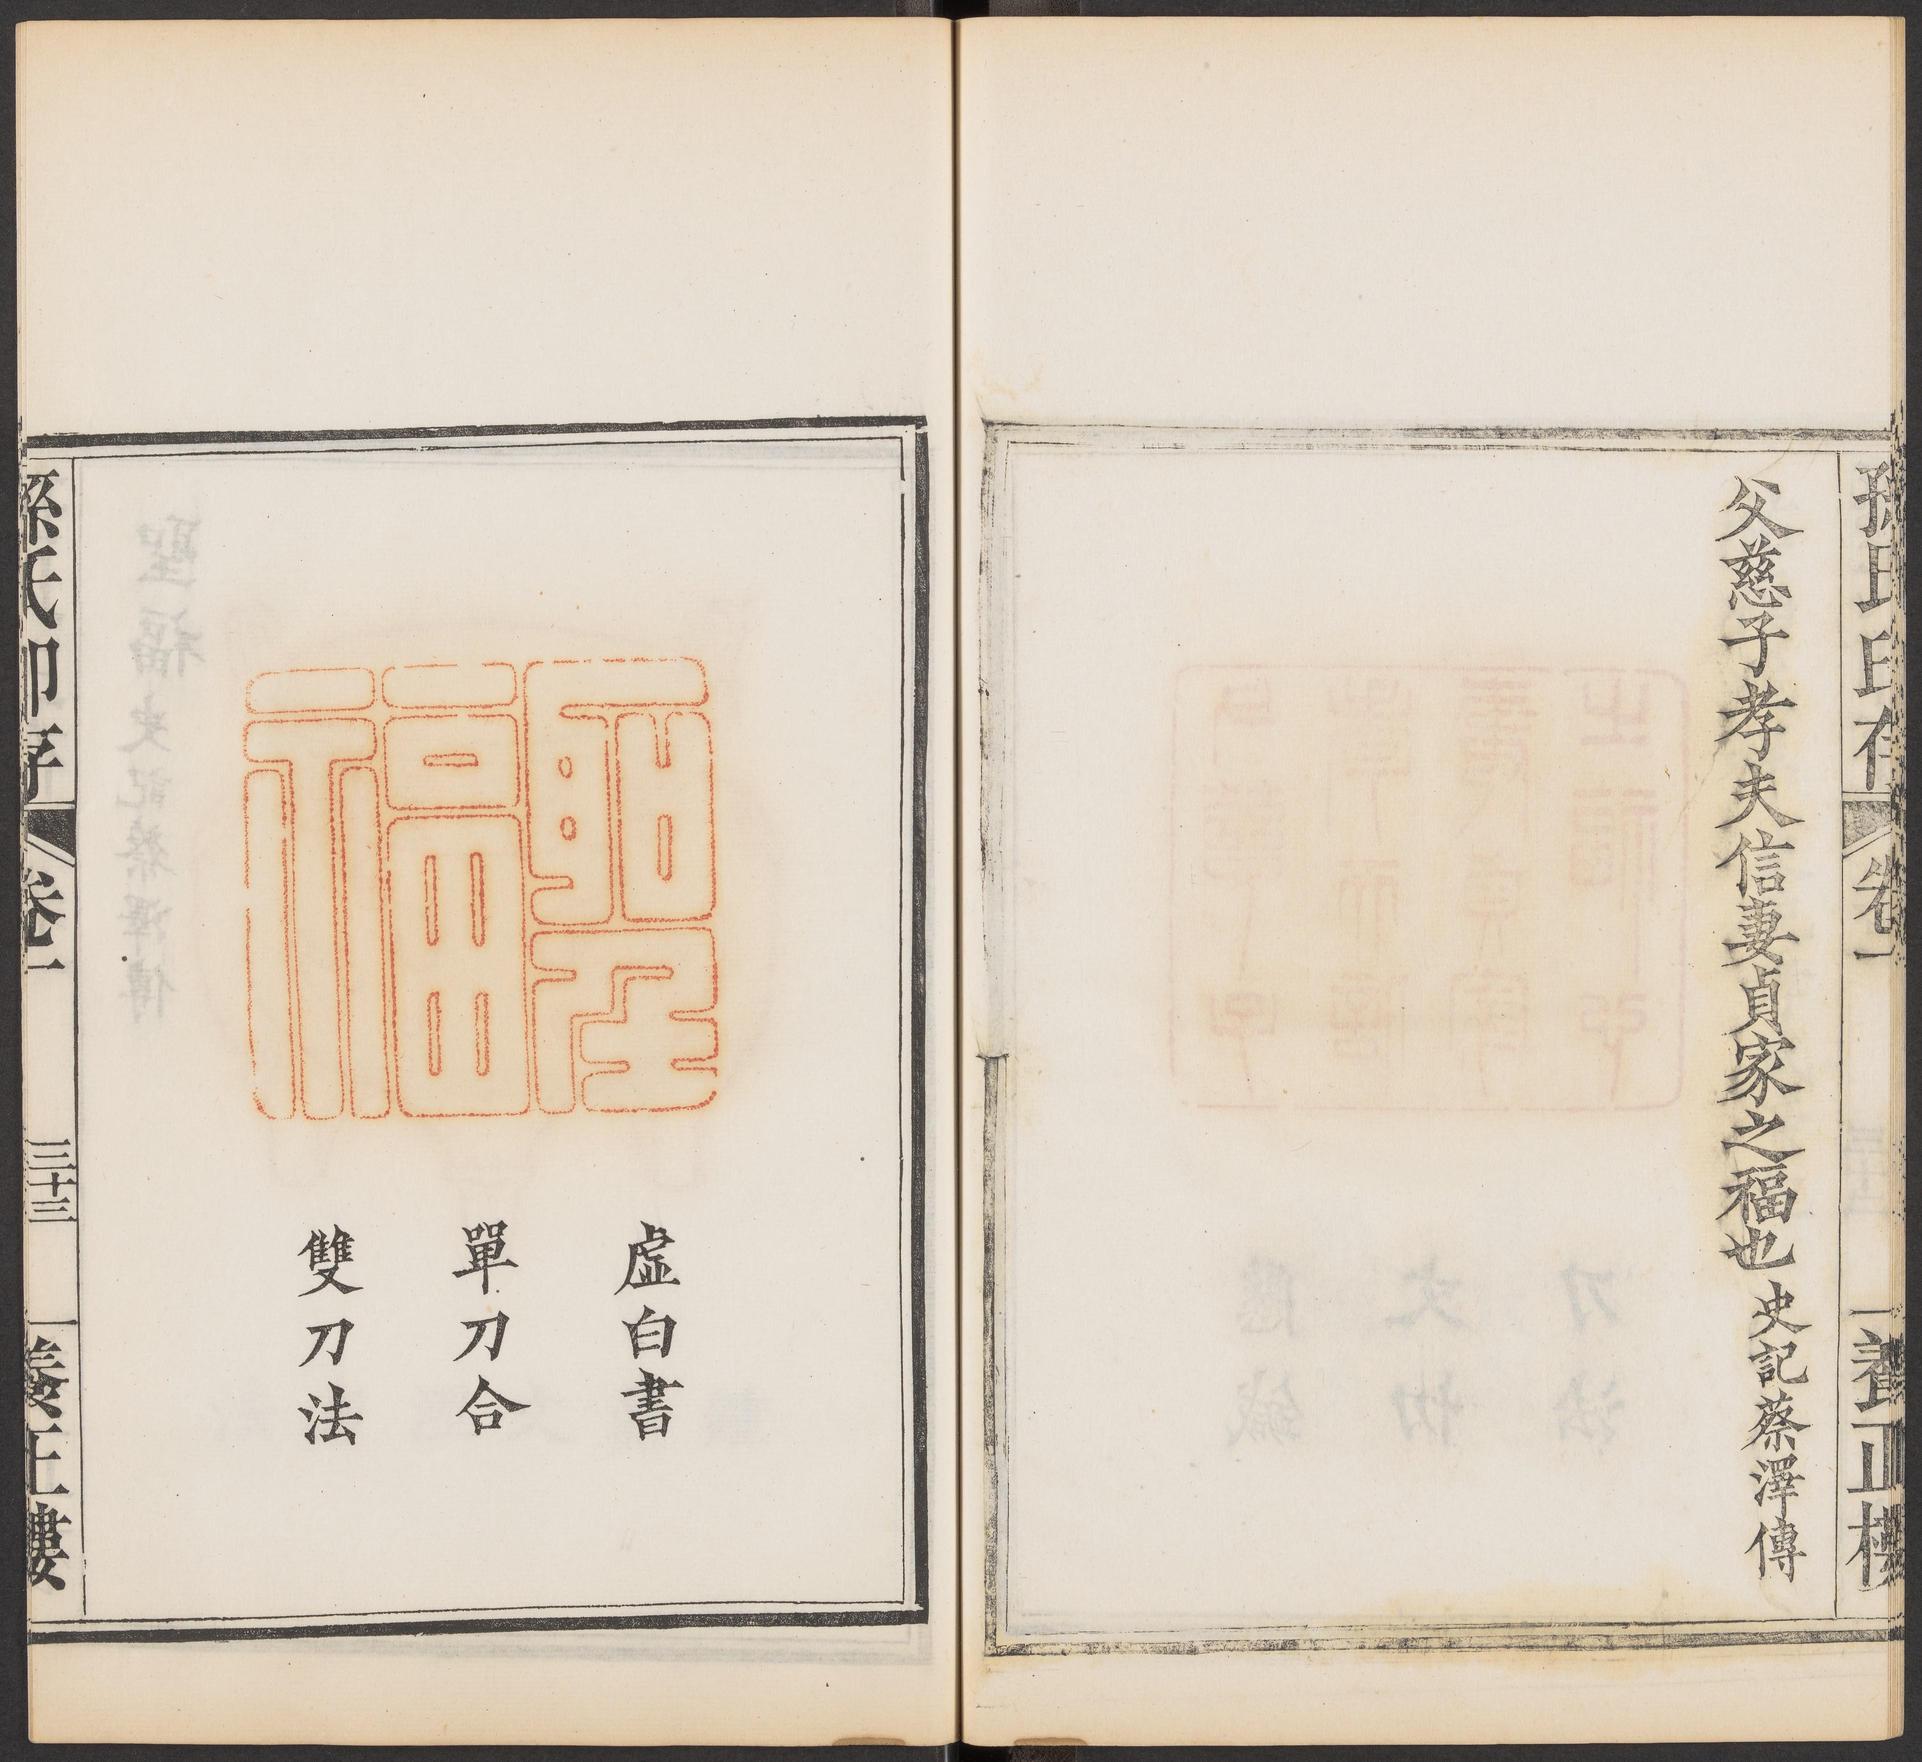 孫氏印存
卷一
養正樓
父慈子孝夫信妻貞家之福也史記蔡澤傳
聖福
虛白書
單刀合
雙刀法
孫氏印存
卷一
三十三
養正樓